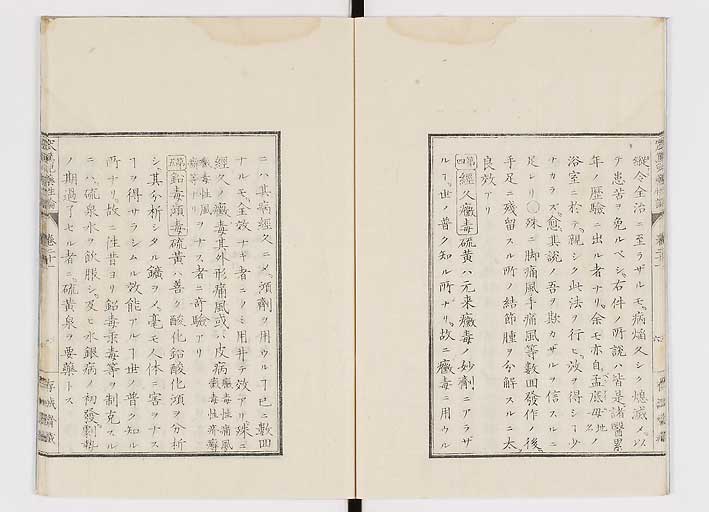 縱令全治ニ至ラザルモ、病焔久シク熄滅〆以
テ患苦ヲ免ルベシ、右件ノ所說ハ皆是諸醫累
年ノ歷驗ニ出ル者ナリ、余モ亦自孟底母ノ
浴室ニ於テ視シク此法ヲ行ヒ、效ヲ得シヿ少
ナカラズ、愈其說ノ吾ヲ欺カザルヲ信スルニ
足レリ○殊ニ脚痛風手痛風等數回發作ノ後、
手足ニ殘留スル所ノ結節腫ヲ分解スルニ太
良效アリ
第四 經久黴毒 硫黃ハ元來黴毒ノ妙劑ニアラザ
ルヿ、世ノ普ク知ル所ナリ、故ニ黴毒ニ用ウル
ニハ其病經久ニ〆、澒劑ヲ用ウルヿ已ニ數回
ナルモ、全效ナキ者ニノミ用井テ效アリ、殊ニ
經久ノ黴毒其外形痛風或ハ皮病 黴毒性痛風 黴毒性疥癬
黴毒性風 癬等ナリ ヲナス者ニ奇驗アリ
第五 鉛毒澒毒 硫黃ハ善ク酸化鉛酸化澒ヲ分析
シ、其分析シタル鑛ヲ〆、毫モ人体ニ害ヲナス
ヿヲ得サラシムル效能アルヿ世ノ普ク知ル
所ナリ、故ニ往昔ヨリ鉛毒汞毒等ヲ制克スル
ニハ、硫泉水ヲ飮服シ、及ヒ水銀病ノ初發劇
ノ期過了セル者ニ、硫黃泉ヲ要藥トス
卷二十一